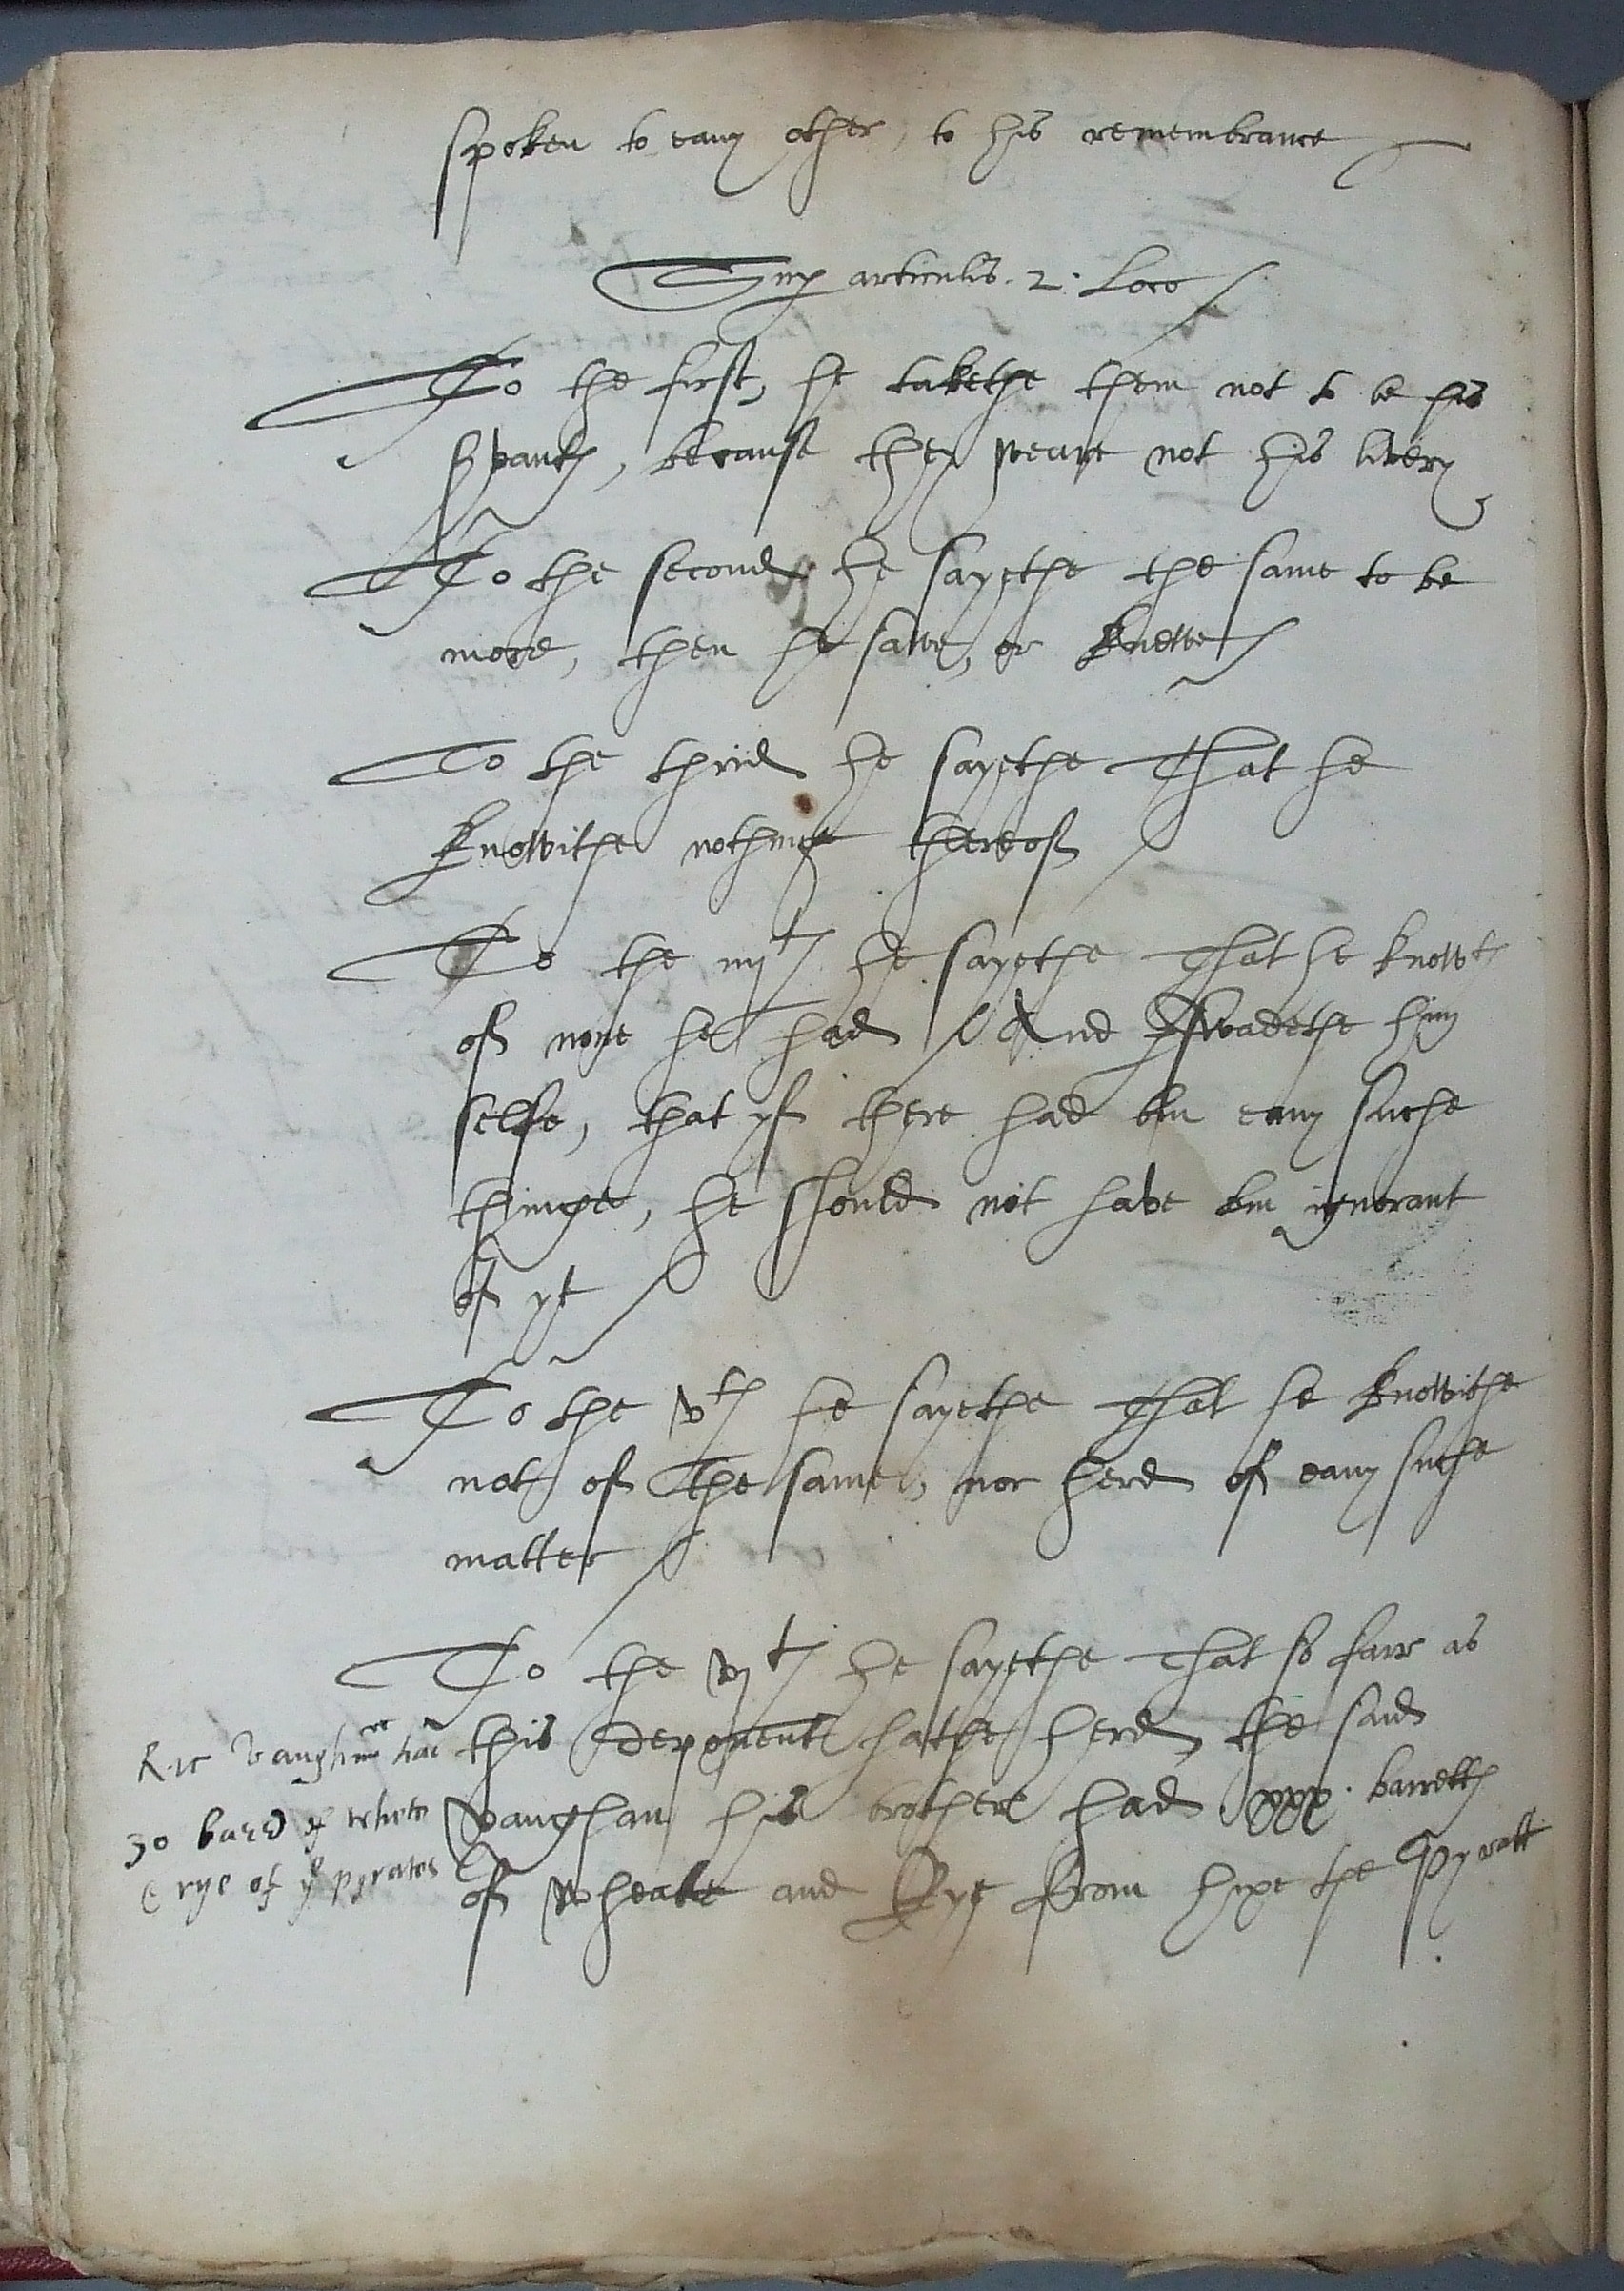 spoken to eany other, to his remembrance
Sup articulis. 2. Loco
To the first, he takethe them not to be his
svantes, because they weare not his livery
To the second he sayethe the same to be
more, then he sawe, or knewe
To the third he sayethe That he
knowithe nothinge thereof
To the iiijth he sayethe That he knowth
of none he had / And pswadethe him
selfe, that yf there had bin eany suche
thinge, he should not have bin ignorant
of yt
To the vth he sayethe That he knowithe
not of the same, nor herd of eany suche
matter
To the vjth he sayethe That so farr as
this deponent hathe herd, the said
Vaughan his brother had xxx. barrells
of wheate and Rye from hixe the Pyratt
Ric Vaughan had
30 barells of whete
& rye of ye pyrates